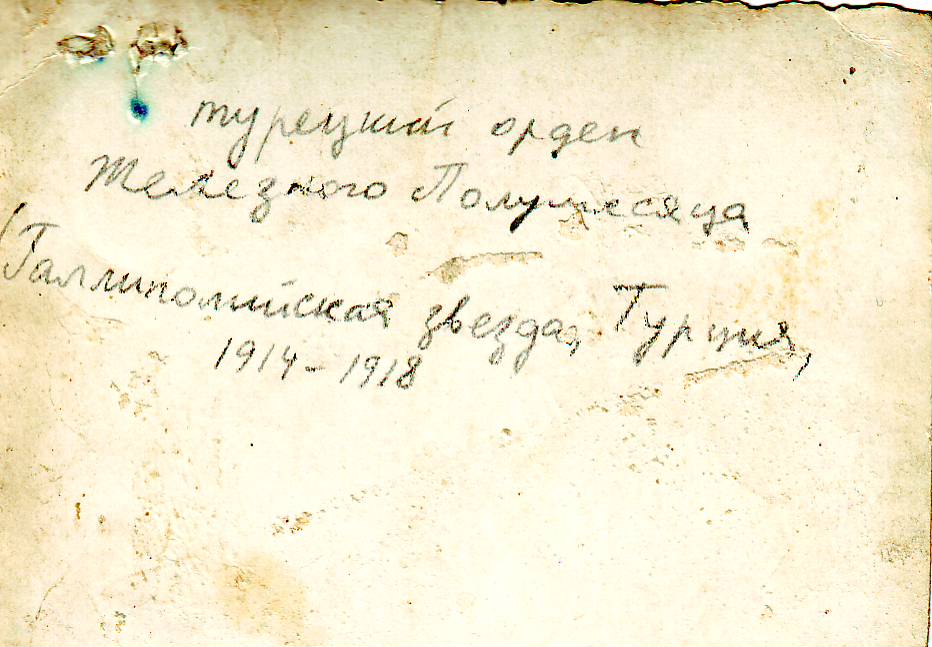 турецкий орден
Железного Полумесяца
(Галлиполийская звезда, Турция,
1914-1918